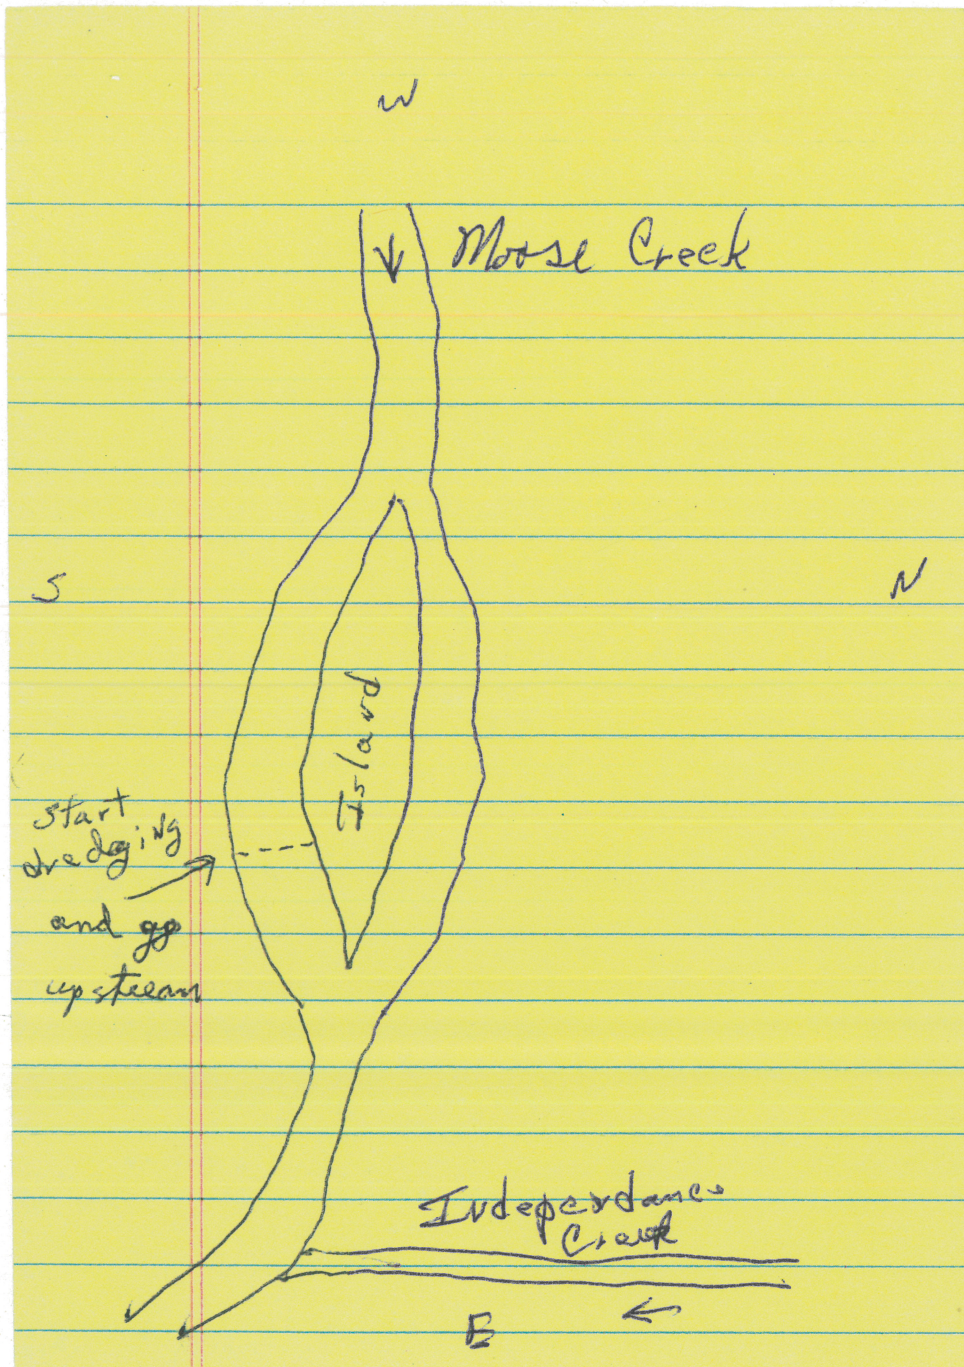 W
Moose Creek
S
N
Island
start
dredging
and go
upstream
Independance
Creek
E